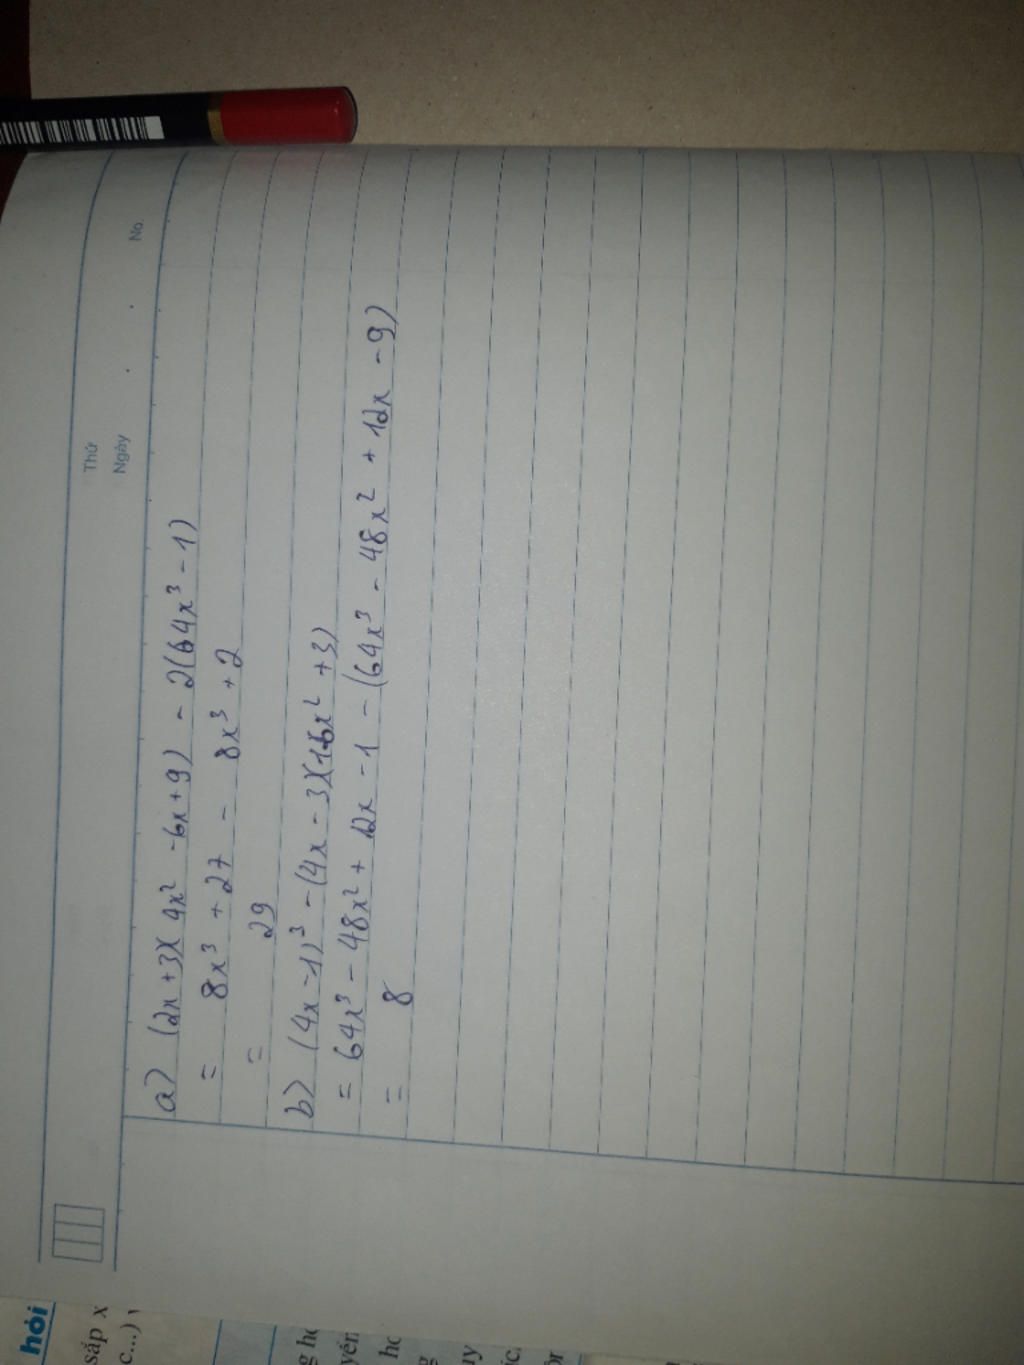 Thứ
Ngày
No.
a) (2x+3)(4x² -6x+9) - 2(64x³-1)
= 8x³ +27 - 8x³ +2
= 29
b) (4x-1)³ -(4x-3)(16x² +3)
= 64x³ - 48x² + 12x -1 - (64x³ - 48x² + 12x - 9)
= 8
hỏi
sắp x
c...)